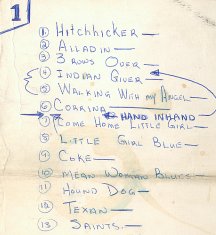 1
1 Hitchhicker —
2 Alladin —
3 3 Rows Over —
4 Indian Giver —
5 Walking With my Angel —
6 Corrina —
HAND IN HAND
7 Come Home Little Girl —
8 Little Girl Blue —
9 Coke —
10 Mean Woman Blues —
11 Hound Dog —
12 Texan —
13 Saints. —